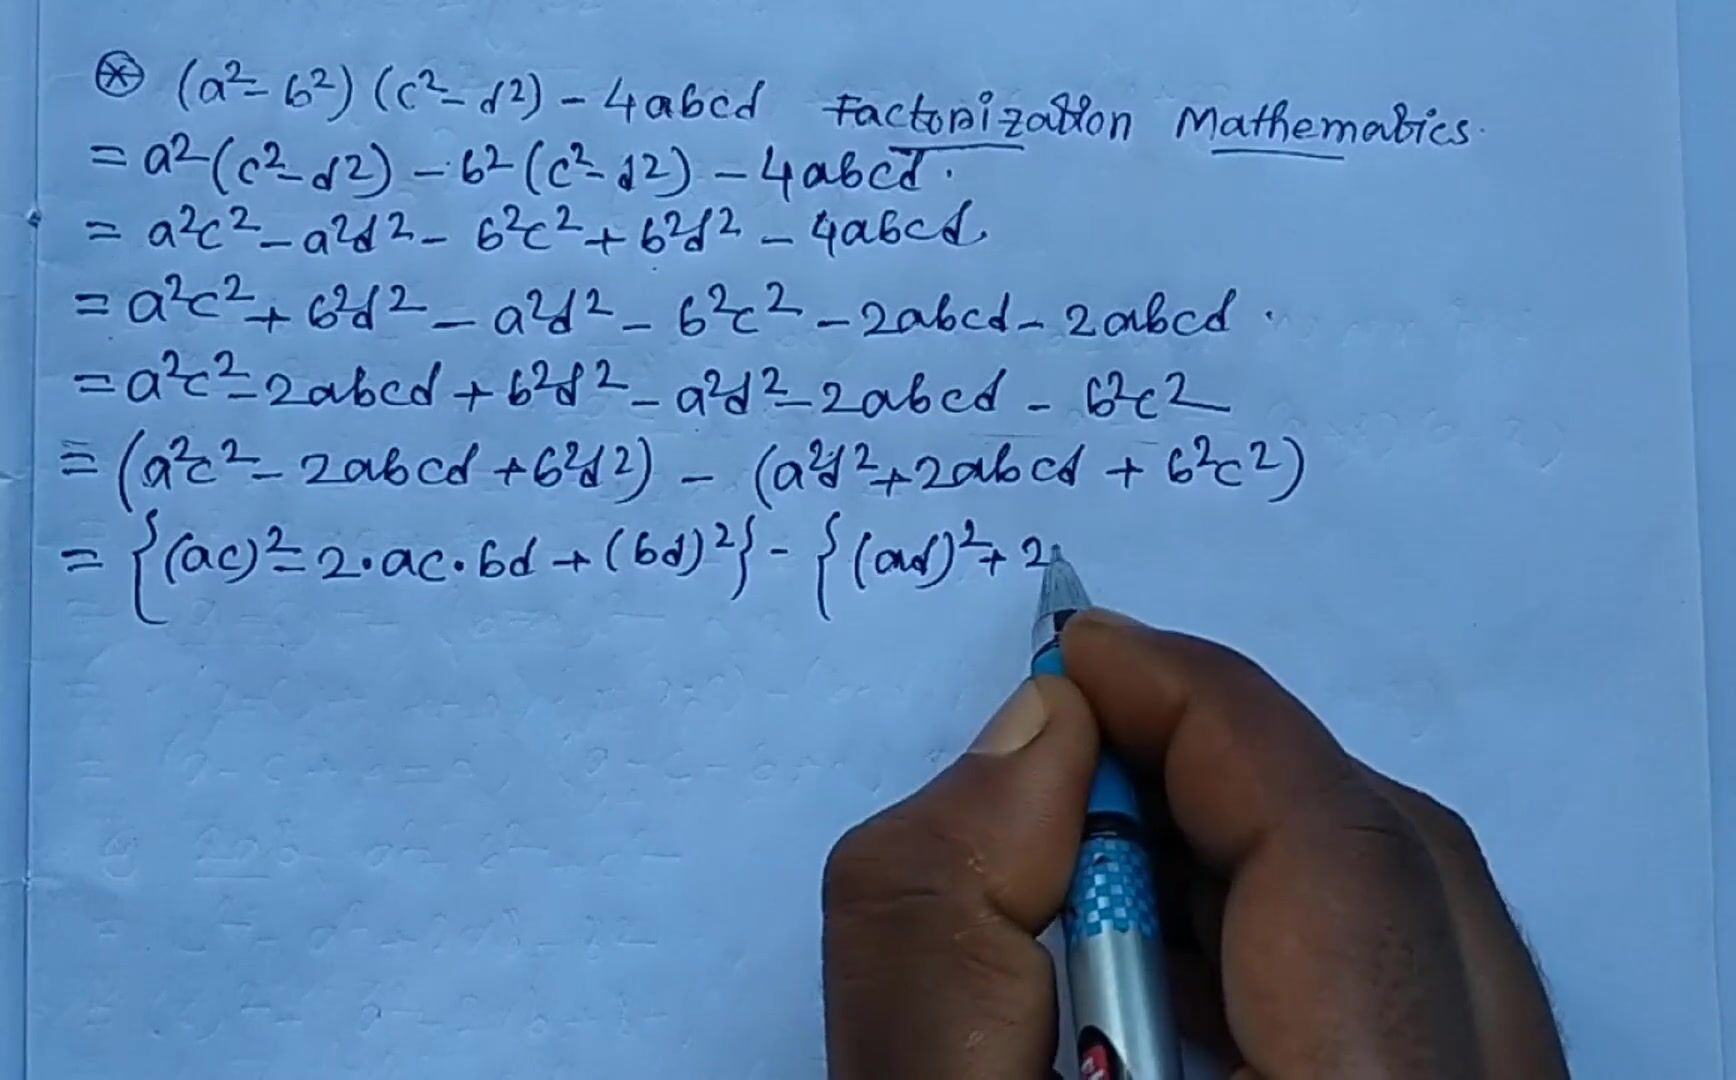 ⊛ (a²-b²)(c²-d²)-4abcd Factorization Mathematics.
= a²(c²-d²)-b²(c²-d²)-4abcd.
= a²c²-a²d²-b²c²+b²d²-4abcd.
= a²c²+b²d²-a²d²-b²c²-2abcd-2abcd.
= a²c²-2abcd+b²d²-a²d²-2abcd-b²c²
= (a²c²-2abcd+b²d²)-(a²d²+2abcd+b²c²)
= {(ac)²-2·ac·bd+(bd)²}-{(ad)²+2